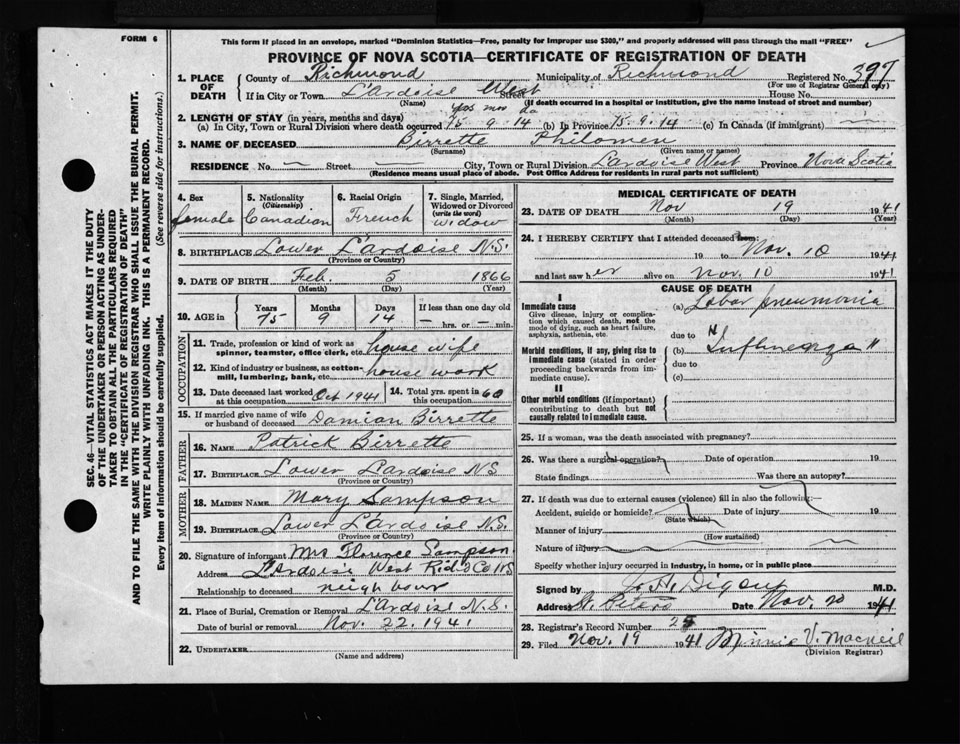 FORM 6
This form if placed in an envelope, marked "Dominion Statistics—Free, penalty for improper use $300," and properly addressed will pass through the mail "FREE"
PROVINCE OF NOVA SCOTIA—CERTIFICATE OF REGISTRATION OF DEATH
SEC. 46—VITAL STATISTICS ACT MAKES IT THE DUTY
OF THE UNDERTAKER OR PERSON ACTING AS UNDER-
TAKER TO OBTAIN ALL THE PARTICULARS REQUIRED
IN THE "CERTIFICATE OF REGISTRATION OF DEATH"
AND TO FILE THE SAME WITH THE DIVISION REGISTRAR WHO SHALL ISSUE THE BURIAL PERMIT.
WRITE PLAINLY WITH UNFADING INK. THIS IS A PERMANENT RECORD.
Every item of Information should be carefully supplied. (See reverse side for instructions.)
1. PLACE OF DEATH County of Richmond Municipality of Richmond Registered No. 397
(For use of Registrar General only)
If in City or Town L'Ardoise West Street House No.
(Name) (If death occurred in a hospital or institution, give the name instead of street and number)
2. LENGTH OF STAY (in years, months and days) yrs mos da
(a) In City, Town or Rural Division where death occurred 75-9-14 (b) In Province 75-9-14 (c) In Canada (if immigrant) —
3. NAME OF DECEASED Birrette Philomen
(Surname) (Given name or names)
RESIDENCE No. — Street — City, Town or Rural Division Lardoise West Province Nova Scotia
(Residence means usual place of abode. Post Office Address for residents in rural parts not sufficient)
4. Sex female
5. Nationality (Citizenship) Canadian
6. Racial Origin French
7. Single, Married, Widowed or Divorced (write the word) widow
8. BIRTHPLACE Lower L'Ardoise N.S.
(Province or Country)
9. DATE OF BIRTH Feb 5 1866
(Month) (Day) (Year)
10. AGE in Years 75 Months 9 Days 14 If less than one day old — hrs. or — min.
OCCUPATION
11. Trade, profession or kind of work as spinner, teamster, office clerk, etc. house wife
12. Kind of industry or business, as cotton-mill, lumbering, bank, etc. house work
13. Date deceased last worked at this occupation Oct 1941 14. Total yrs. spent in this occupation 60
15. If married give name of wife or husband of deceased Damian Birrette
FATHER
16. NAME Patrick Birrette
17. BIRTHPLACE Lower Lardoise NS
(Province or Country)
MOTHER
18. MAIDEN NAME Mary Sampson
19. BIRTHPLACE Lower L'Ardoise N.S.
(Province or Country)
20. Signature of informant Mrs Florence Sampson
Address L'Ardoise West Rich Co NS
Relationship to deceased neighbour
21. Place of Burial, Cremation or Removal L'Ardoise N.S.
Date of burial or removal Nov. 22. 1941
22. UNDERTAKER
(Name and address)
MEDICAL CERTIFICATE OF DEATH
23. DATE OF DEATH Nov 19 1941
(Month) (Day) (Year)
24. I HEREBY CERTIFY that I attended deceased from: Nov. 10
19 to 1941
and last saw her alive on Nov. 10 1941
CAUSE OF DEATH
I
Immediate cause
Give disease, injury or complication which caused death, not the mode of dying, such as heart failure, asphyxia, asthenia, etc.
(a) Lobar pneumonia
due to
Morbid conditions, if any, giving rise to immediate cause (stated in order proceeding backwards from immediate cause).
(b) "Influenza"
due to
(c)
II
Other morbid conditions (if important) contributing to death but not causally related to immediate cause.
25. If a woman, was the death associated with pregnancy?
26. Was there a surgical operation? Date of operation 19
State findings Was there an autopsy?
27. If death was due to external causes (violence) fill in also the following:—
Accident, suicide or homicide? Date of injury 19
(State which)
Manner of injury
(How sustained)
Nature of injury
Specify whether injury occurred in industry, in home, or in public place
Signed by J. H. Digout M.D.
Address St. Peters Date Nov. 20 1941
28. Registrar's Record Number 25
29. Filed Nov. 19 1941 Minnie V. MacNeil
(Division Registrar)